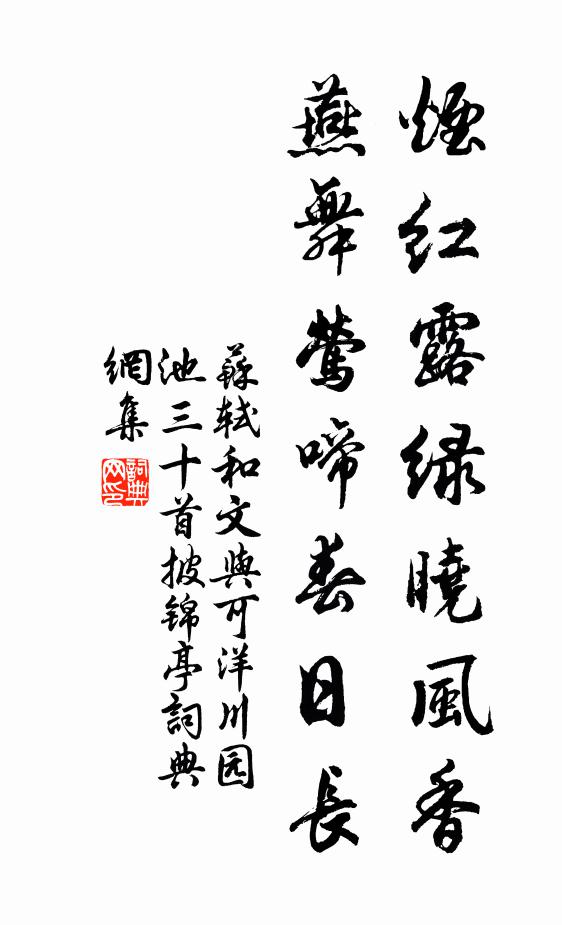 煙紅露緑曉風香
燕舞鶯啼春日長
蘇軾和文與可洋川园
池三十首披锦亭詞典
網集
詞典
网印